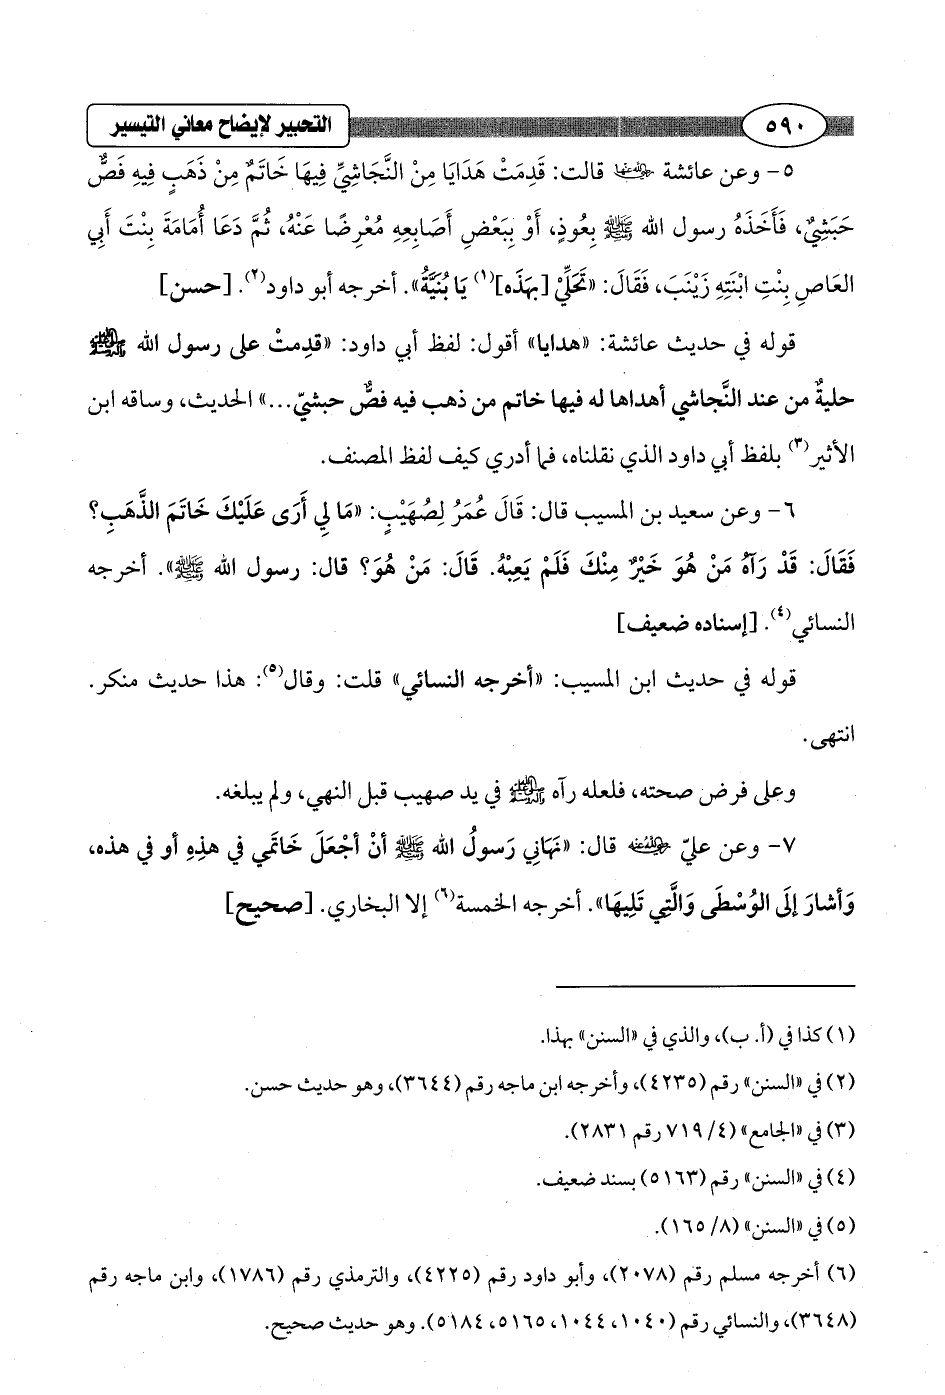 ٥٩٠ التحبير لإيضاح معاني التيسير
٥- وعن عائشة رضي الله عنها قالت: قَدِمَتْ هَدَايَا مِنْ النَّجَاشِيِّ فِيهَا خَاتَمٌ مِنْ ذَهَبٍ فِيهِ فَصٌّ
حَبَشِيٌّ، فَأَخَذَهُ رسول الله ﷺ بِعُوذٍ، أَوْ بِبَعْضِ أَصَابِعِهِ مُعْرِضًا عَنْهُ، ثُمَّ دَعَا أُمَامَةَ بِنْتَ أَبِي
العَاصِ بِنْتِ ابْنَتِهِ زَيْنَبَ، فَقَالَ: «تَحَلِّيْ [بِهَذَه](١) يَا بُنَيَّةُ». أخرجه أبو داود(٢). [حسن]
قوله في حديث عائشة: «هدايا» أقول: لفظ أبي داود: «قدِمتْ على رسول الله ﷺ
حليةٌ من عند النَّجاشي أهداها له فيها خاتم من ذهب فيه فصٌّ حبشيّ...» الحديث، وساقه ابن
الأثير(٣) بلفظ أبي داود الذي نقلناه، فما أدري كيف لفظ المصنف.
٦- وعن سعيد بن المسيب قال: قَالَ عُمَرُ لِصُهَيْبٍ: «مَا لِي أَرَى عَلَيْكَ خَاتَمَ الذَّهَبِ؟
فَقَالَ: قَدْ رَآهُ مَنْ هُوَ خَيْرٌ مِنْكَ فَلَمْ يَعِبْهُ. قَالَ: مَنْ هُوَ؟ قال: رسول الله ﷺ». أخرجه
النسائي(٤). [إسناده ضعيف]
قوله في حديث ابن المسيب: «أخرجه النسائي» قلت: وقال(٥): هذا حديث منكر.
انتهى.
وعلى فرض صحته، فلعله رآه ﷺ في يد صهيب قبل النهي، ولم يبلغه.
٧- وعن عليّ رضي الله عنه قال: «نَهَانِي رَسولُ الله ﷺ أنْ أجْعَلَ خَاتَمِي في هذِهِ أو في هذه،
وَأشارَ إلَى الوُسْطَى وَالَّتِي تَلِيهَا». أخرجه الخمسة(٦) إلا البخاري. [صحيح]
(١) كذا في (أ. ب)، والذي في «السنن» بهذا.
(٢) في «السنن» رقم (٤٢٣٥)، وأخرجه ابن ماجه رقم (٣٦٤٤)، وهو حديث حسن.
(٣) في «الجامع» (٤/ ٧١٩ رقم ٢٨٣١).
(٤) في «السنن» رقم (٥١٦٣) بسند ضعيف.
(٥) في «السنن» (٨/ ١٦٥).
(٦) أخرجه مسلم رقم (٢٠٧٨)، وأبو داود رقم (٤٢٢٥)، والترمذي رقم (١٧٨٦)، وابن ماجه رقم
(٣٦٤٨)، والنسائي رقم (١٠٤٠، ١٠٤٤، ٥١٦٥، ٥١٨٤). وهو حديث صحيح.